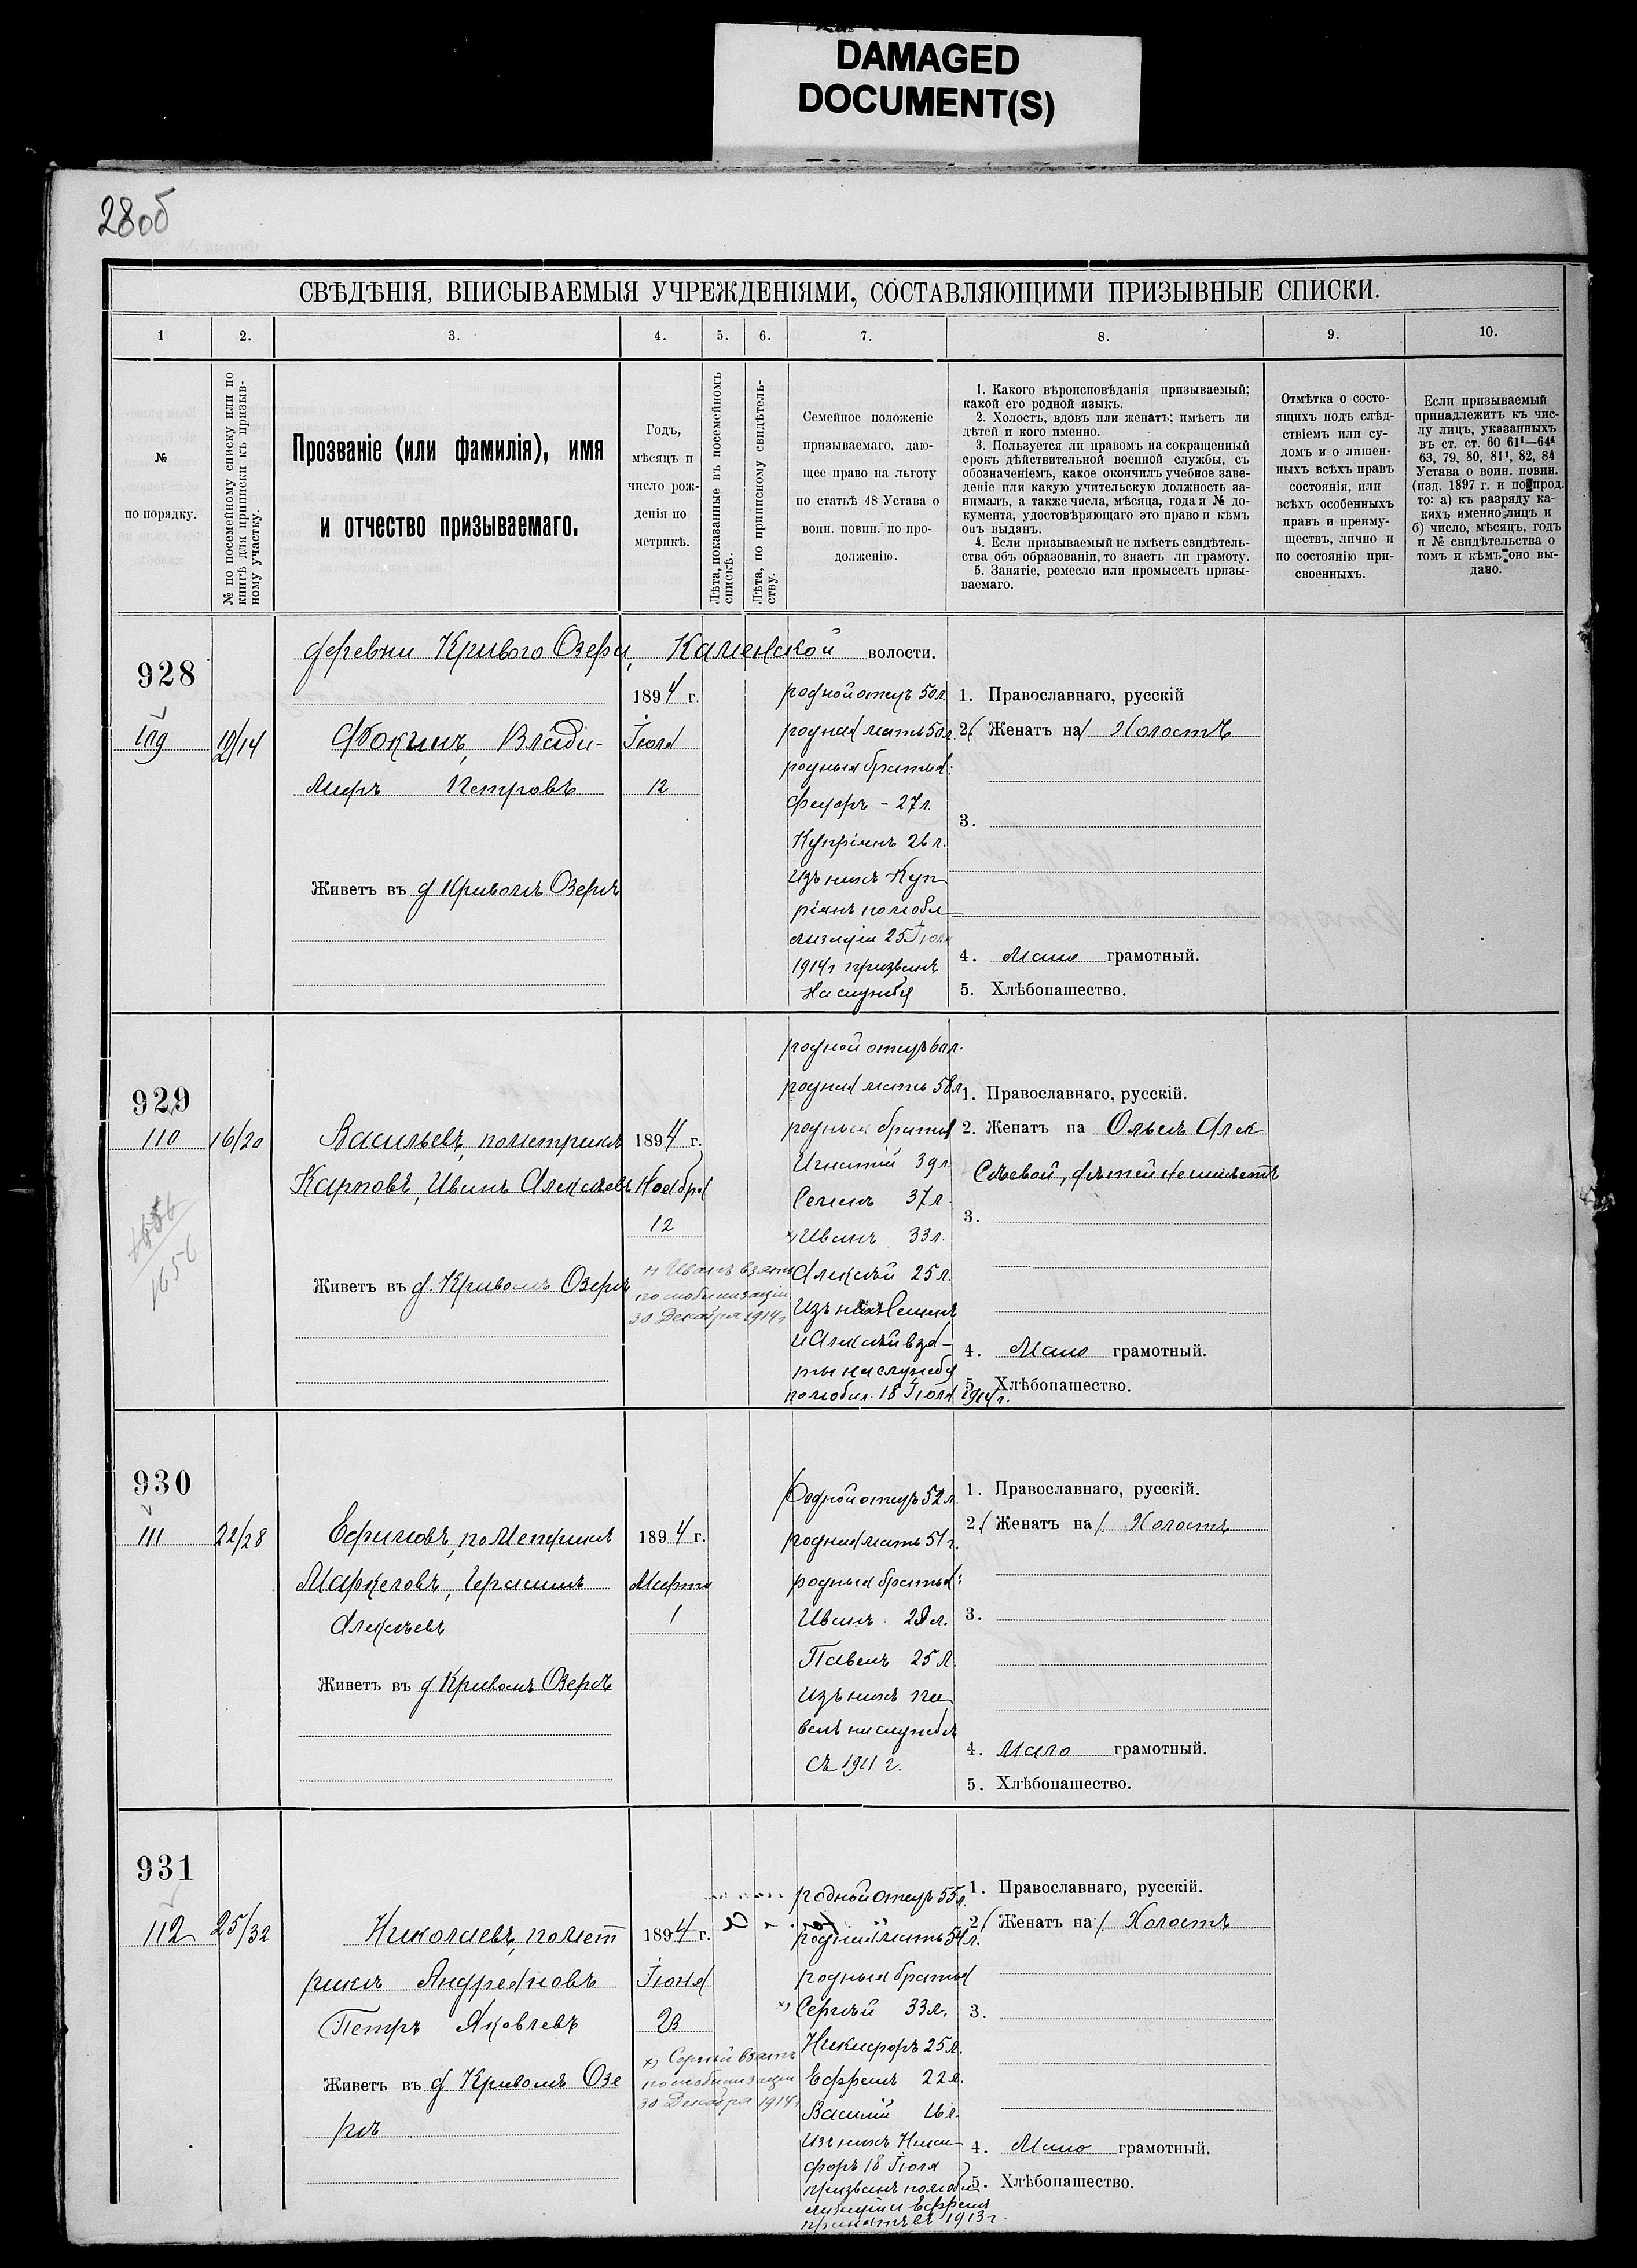 DAMAGED
DOCUMENT(S)
28об
СВѢДѢНІЯ, ВПИСЫВАЕМЫЯ УЧРЕЖДЕНІЯМИ, СОСТАВЛЯЮЩИМИ ПРИЗЫВНЫЕ СПИСКИ.
1 2. 3. 4. 5. 6. 7. 8. 9. 10.
№
по порядку.
№ по посемейному списку или по
книгѣ для приписки къ призыв-
ному участку.
Прозваніе (или фамилія), имя
и отчество призываемаго.
Годъ,
мѣсяцъ и
число рож-
денія по
метрикѣ.
Лѣта, показанные въ посемейномъ
спискѣ.
Лѣта, по приписному свидѣтель-
ству.
Семейное положеніе
призываемаго, даю-
щее право на льготу
по статьѣ 48 Устава о
воин. повин. по про-
долженію.
1. Какого вѣроисповѣданія призываемый;
какой его родной языкъ.
2. Холостъ, вдовъ или женатъ; имѣетъ ли
дѣтей и кого именно.
3. Пользуется ли правомъ на сокращенный
срокъ дѣйствительной военной службы, съ
обозначеніемъ, какое окончилъ учебное заве-
деніе или какую учительскую должность за-
нималъ, а также числа, мѣсяца, года и № до-
кумента, удостовѣряющаго это право и кѣмъ
онъ выданъ.
4. Если призываемый не имѣетъ свидѣтель-
ства объ образованіи, то знаетъ ли грамоту.
5. Занятіе, ремесло или промыселъ призы-
ваемаго.
Отмѣтка о состо-
ящихъ подъ слѣд-
ствіемъ или су-
домъ и о лишен-
ныхъ всѣхъ правъ
состоянія, или
всѣхъ особенныхъ
правъ и преиму-
ществъ, лично и
по состоянію при-
своенныхъ.
Если призываемый
принадлежитъ къ чис-
лу лицъ, указанныхъ
въ ст. ст. 60 61¹—64⁴
63, 79, 80, 81¹, 82, 84
Устава о воин. повин.
(изд. 1897 г. и по прод.
то: а) къ разряду ка-
кихъ именно лицъ и
б) число, мѣсяцъ, годъ
и № свидѣтельства о
томъ и кѣмъ оно вы-
дано.
деревни Кривого Озера, Каменской волости.
928
109
10/14
Фокинъ, Влади-
миръ Петровъ
Живетъ въ д Кривомъ Озерѣ
1894 г.
Іюля
12
родной отецъ 50 л.
родная мать 50 л.
родные братья:
Федоръ - 27 л.
Купріянъ 26 л.
изъ нихъ Куп
ріянъ по моби
лизаціи 25 Іюля
1914 г призванъ
на службу
1. Православнаго, русскій
2. (Женатъ на) Холостъ
3.
4. Мало грамотный.
5. Хлѣбопашество.
929
110
16/20
1656
Васильевъ, по метрикѣ
Карповъ, Иванъ Алексѣевъ
Живетъ въ д. Кривомъ Озерѣ
1894 г.
Ноября
12
х) Иванъ взятъ
по мобилизаціи
30 Декабря 1914 г
родной отецъ 60 л.
родная мать 58 л.
родные братья
Игнатій 39 л.
Семенъ 37 л.
х) Иванъ 33 л.
Алексѣй 25 л.
изъ нихъ Семенъ
и Алексѣй взя-
ты на службу
по мобил. 18 Іюля 1914 г.
1. Православнаго, русскій.
2. Женатъ на Ольгѣ Алек
сѣевой, дѣтей не имѣетъ
3.
4. Мало грамотный.
5. Хлѣбопашество.
930
111
22/28
Ефимовъ, по метрикѣ
Маркеловъ, Герасимъ
Алексѣевъ
Живетъ въ д Кривомъ Озерѣ
1894 г.
Марта
1
Родной отецъ 52 л.
родная мать 51 г.
родные братья:
Иванъ 28 л.
Павелъ 25 л.
изъ нихъ Па
велъ на службѣ
съ 1911 г.
1. Православнаго, русскій.
2. (Женатъ на). Холостъ
3.
4. Мало грамотный.
5. Хлѣбопашество.
931
112
25/32
Николаевъ, по мет
рикѣ Андреяновъ
Петръ Яковлевъ
Живетъ въ д. Кривомъ Озе
рѣ
1894 г.
Іюня
23
х) Сергѣй взятъ
по мобилизаціи
30 Декабря 1914 г
родной отецъ 55 л.
родная мать 54 л.
родные братья
х) Сергѣй 33 л.
Никифоръ 25 л.
Ефремъ 22 л.
Василій 16 л.
изъ нихъ Ники
форъ 18 Іюля
призванъ по моби
лизаціи и Ефремъ
принятъ въ 1913 г.
1. Православнаго, русскій.
2. (Женатъ на). Холостъ
3.
4. Мало грамотный.
5. Хлѣбопашество.